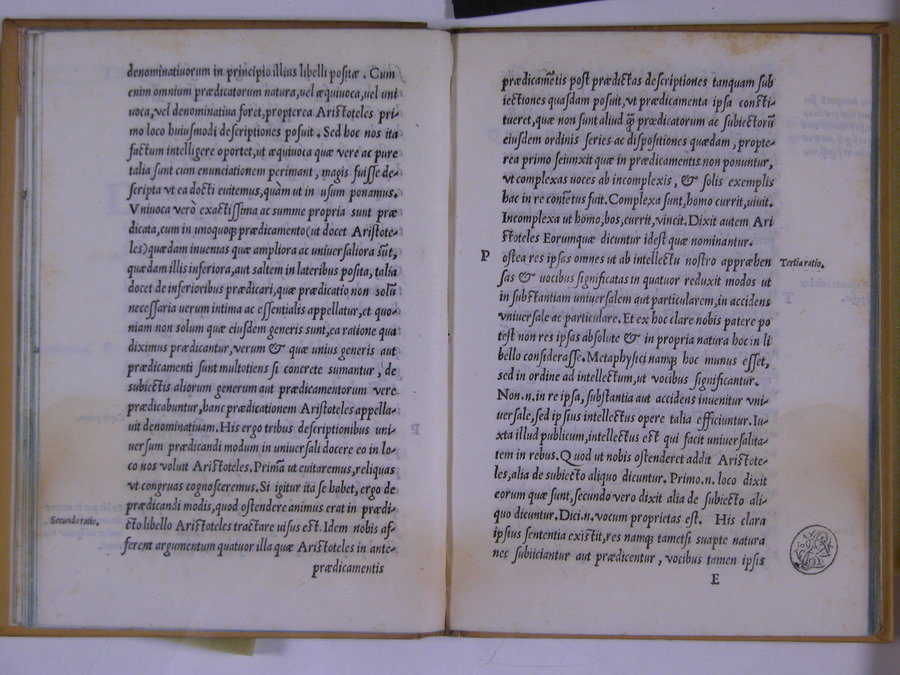 denominatiuorum in principio illius libelli positæ. Cum
enim omnium prædicatorum natura, uel æquiuoca, uel uni
uoca, vel denominatiua foret, propterea Aristoteles pri
mo loco huiusmodi descriptiones posuit. Sed hoc nos ita
factum intelligere oportet, ut æquiuoca quæ vere ac pure
talia sunt cum enunciationem perimant, magis fuisse de-
scripta vt ea docti euitemus, quàm ut in usum ponamus.
Vniuoca verò exactissima ac summe propria sunt præ
dicata, cum in unoquoq; prædicamento (ut docet Aristote-
les) quædam inuenias quæ ampliora ac uniuersaliora sũt,
quædam illis inferiora, aut saltem in lateribus posita, talia
docet de inferioribus prædicari, quæ prædicatio non solũ
necessaria uerum intima ac essentialis appellatur, et quo-
niam non solum quæ eiusdem generis sunt, ea ratione qua
diximus prædicantur, verum & quæ unius generis aut
prædicamenti sunt multotiens si concrete sumantur, de
subiectis aliorum generum aut prædicamentorum vere
prædicabuntur, hanc prædicationem Aristoteles appella-
uit denominatiuam. His ergo tribus descriptionibus uni-
uersum prædicandi modum in uniuersali docere eo in lo-
co nos voluit Aristoteles. Primã ut euitaremus, reliquas
vt congruas cognosceremus. Si igitur ita se habet, ergo de
prædicandi modis, quod ostendere animus erat in prædi-
Secunda ratio.
cto libello Aristoteles tractare uisus est. Idem nobis af-
ferent argumentum quatuor illa quæ Aristoteles in ante-
prædicamentis
prædicamẽtis post prædictas descriptiones tanquam sub
iectiones quasdam posuit, vt prædicamenta ipsa consti
tueret, quæ non sunt aliud q̃ prædicatorum ac subiectorũ
eiusdem ordinis series ac dispositiones quædam, propte-
rea primo seiunxit quæ in prædicamentis non ponuntur,
vt complexas uoces ab incomplexis, & solis exemplis
hac in re contẽtus fuit. Complexa sunt, homo currit, uiuit.
Incomplexa ut homo, bos, currit, vincit. Dixit autem Ari
stoteles Eorumquæ dicuntur idest quæ nominantur.
P ostea res ipsas omnes ut ab intellectu nostro appræhen
Tertia ratio.
sas & vocibus significatas in quatuor reduxit modos ut
in substantiam uniuersalem aut particularem, in accidens
vniuersale ac particulare. Et ex hoc clare nobis patere po
test non res ipsas absolute & in propria natura hoc in li
bello considerasse. Metaphysici namq; hoc munus esset,
sed in ordine ad intellectum, ut vocibus significantur.
Non .n. in re ipsa, substantia aut accidens inuenitur vni-
uersale, sed ipsius intellectus opere talia efficiuntur. Iu-
xta illud publicum, intellectus est qui facit uniuersalita-
tem in rebus. Quod ut nobis ostenderet addit Aristote-
les, alia de subiecto aliquo dicuntur. Primo .n. loco dixit
eorum quæ sunt, secundo vero dixit alia de subiecto ali-
quo dicuntur. Dici .n. vocum proprietas est. His clara
ipsius sententia existit, res namq; tametsi suapte natura
nec subiiciantur aut prædicentur, vocibus tamen ipsis
E